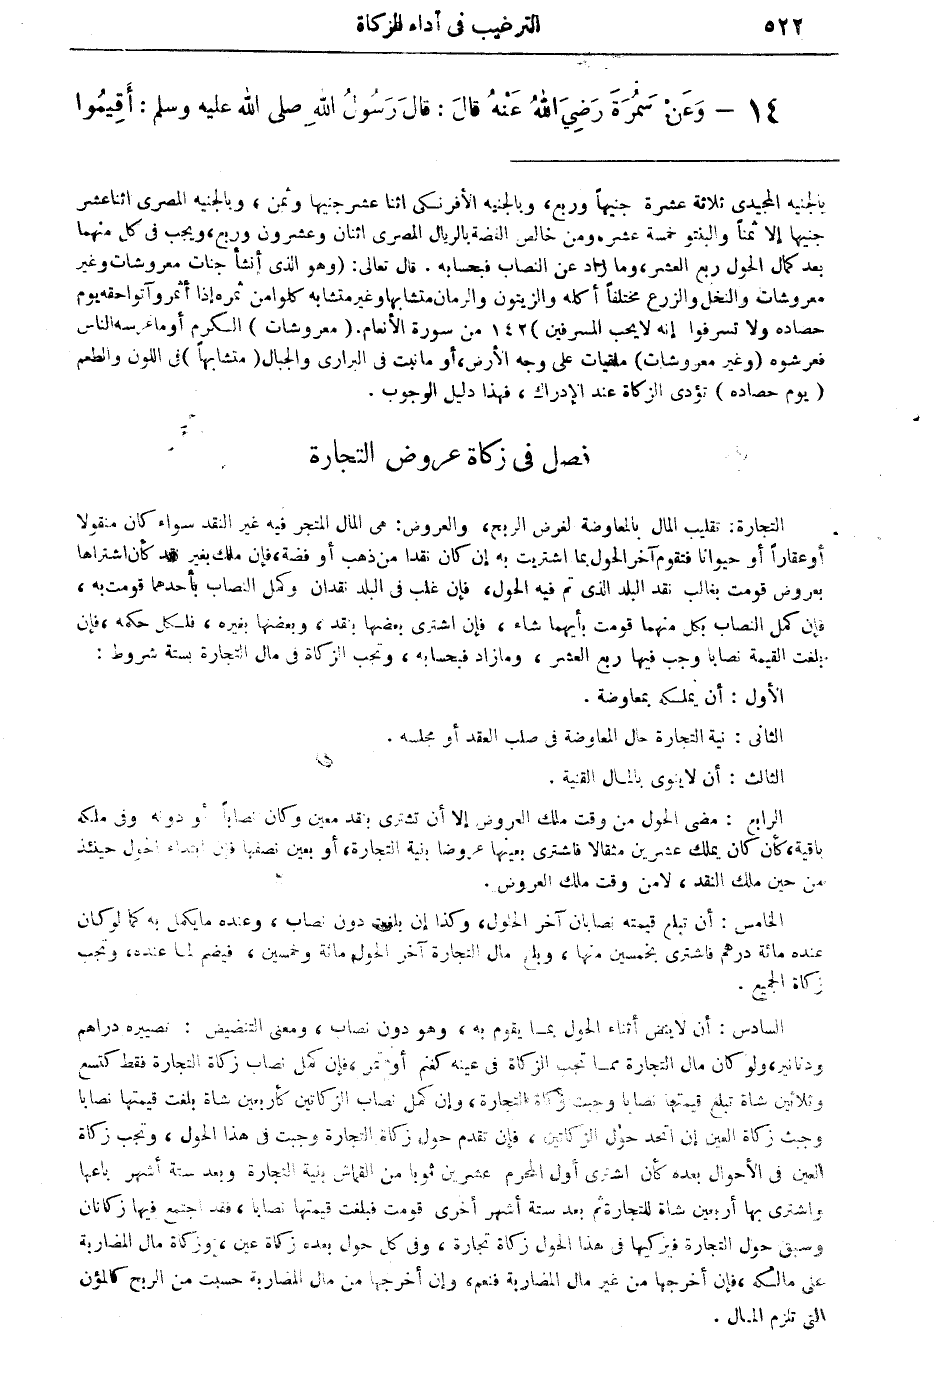 ٥٢٢
الترغيب فى آداء الزكاة
١٤ — وَعَنْ سَمُرَةَ رَضِيَ اللهُ عَنْهُ قَالَ : قَالَ رَسُولُ اللهِ صلى الله عليه وسلم : أَقِيمُوا
بالجنيه المجيدى ثلاثة عشرة جنيهاً وربع، وبالجنيه الأفرنكى اثنا عشر جنيها وثمن ، وبالجنيه المصرى اثناعشر
جنيها إلا ثمناً والبنتو خمسة عشر، ومن خالص الفضة بالريال المصرى اثنان وعشرون وربع، ويجب فى كل منهما
بعد كمال الحول ربع العشر، وما زاد عن النصاب فبحسابه . قال تعالى: (وهو الذى أنشأ جنات معروشات وغير
معروشات والنخل والزرع مختلفاً أكله والزيتون والرمان متشابها وغير متشابه كلوا من ثمره إذا أثمر وآتوا حقه يوم
حصاده ولا تسرفوا إنه لايحب المسرفين ) ١٤٢ من سورة الأنعام. ( معروشات ) الكرم أوماعرسه الناس
فعرشوه (وغير معروشات) ملقيات على وجه الأرض، أو مانبت فى البرارى والجبال ( متشابهاً ) فى اللون والطعم
( يوم حصاده ) تؤدى الزكاة عند الإدراك ، فهذا دليل الوجوب .
فصل فى زكاة عروض التجارة
التجارة: تقليب المال بالمعاوضة لغرض الربح، والعروض: هى المال المتجر فيه غير النقد سواء كان منقولا
أو عقاراً أو حيوانا فتقوم آخر الحول بما اشتريت به إن كان نقدا من ذهب أو فضة، فإن ملك بغير نقد كأن اشتراها
بعروض قومت بغالب نقد البلد الذى تم فيه الحول، فإن غلب فى البلد نقدان وكمل النصاب بأحدهما قومت به ،
فإن كمل النصاب بكل منهما قومت بأيهما شاء ، فإن اشترى بعضها بنقد ، وبعضها بغيره ، فلكل حكمه ، فإن
بلغت القيمة نصابا وجب فيها ربع العشر ، ومازاد فبحسابه ، وتجب الزكاة فى مال التجارة بستة شروط :
الأول : أن يملكه بمعاوضة .
الثانى : نية التجارة حال المعاوضة فى صلب العقد أو مجلسه .
الثالث : أن لاينوى بالمال القنية .
الرابع : مضى الحول من وقت ملك العروض إلا أن تشترى بنقد معين وكان نصاباً أو دونه وفى ملكه
باقية، كأن كان يملك عشرين مثقالا فاشترى بعينها عروضا بنية التجارة، أو بعين نصفها فإن ابتداء الحول حينئذ
من حين ملك النقد ، لامن وقت ملك العروض .
الخامس : أن تبلغ قيمته نصابان آخر الحول، وكذا إن بلغت دون نصاب ، وعنده مايكمل به كما لوكان
عنده مائة درهم فاشترى بخمسين منها ، وبلغ مال التجارة آخر الحول مائة وخمسين ، فيضم لما عنده، وتجب
زكاة الجميع .
السادس : أن لاينض أثناء الحول بما يقوم به ، وهو دون نصاب ، ومعنى التنضيض : تصييره دراهم
ودنانير، ولو كان مال التجارة مما تجب الزكاة فى عينه كغنم أو تمر ، فإن كمل نصاب زكاة التجارة فقط كتسع
وثلاثين شاة تبلغ قيمتها نصابا وجبت زكاة التجارة، وإن كمل نصاب الزكاتين كأربعين شاة بلغت قيمتها نصابا
وجبت زكاة العين إن اتحد حول الزكاتين ، فإن تقدم حول زكاة التجارة وجبت فى هذا الحول ، وتجب زكاة
العين فى الأحوال بعده كأن اشترى أول المحرم عشرين ثوبا من القماش بنية التجارة وبعد ستة أشهر باعها
واشترى بها أربعين شاة للتجارة ثم بعد ستة أشهر أخرى قومت فبلغت قيمتها نصابا ، فقد اجتمع فيها زكاتان
وسبق حول التجارة فيزكيها فى هذا الحول زكاة تجارة ، وفى كل حول بعده زكاة عين ، وزكاة مال المضاربة
على مالكه ، فإن أخرجها من غير مال المضاربة فنعم، وإن أخرجها من مال المضاربة حسبت من الربح كالمؤن
التى تلزم المال .